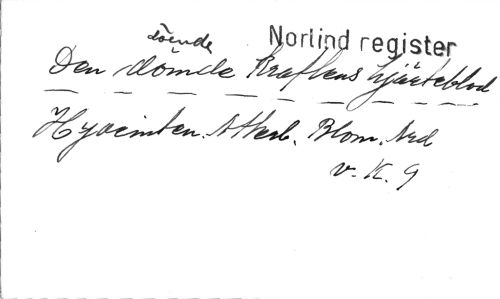 Norlind register
döende
Den dömde kraftens hjärteblod
Hyacinten. Atterb. Blom. Ard
v. K. 9